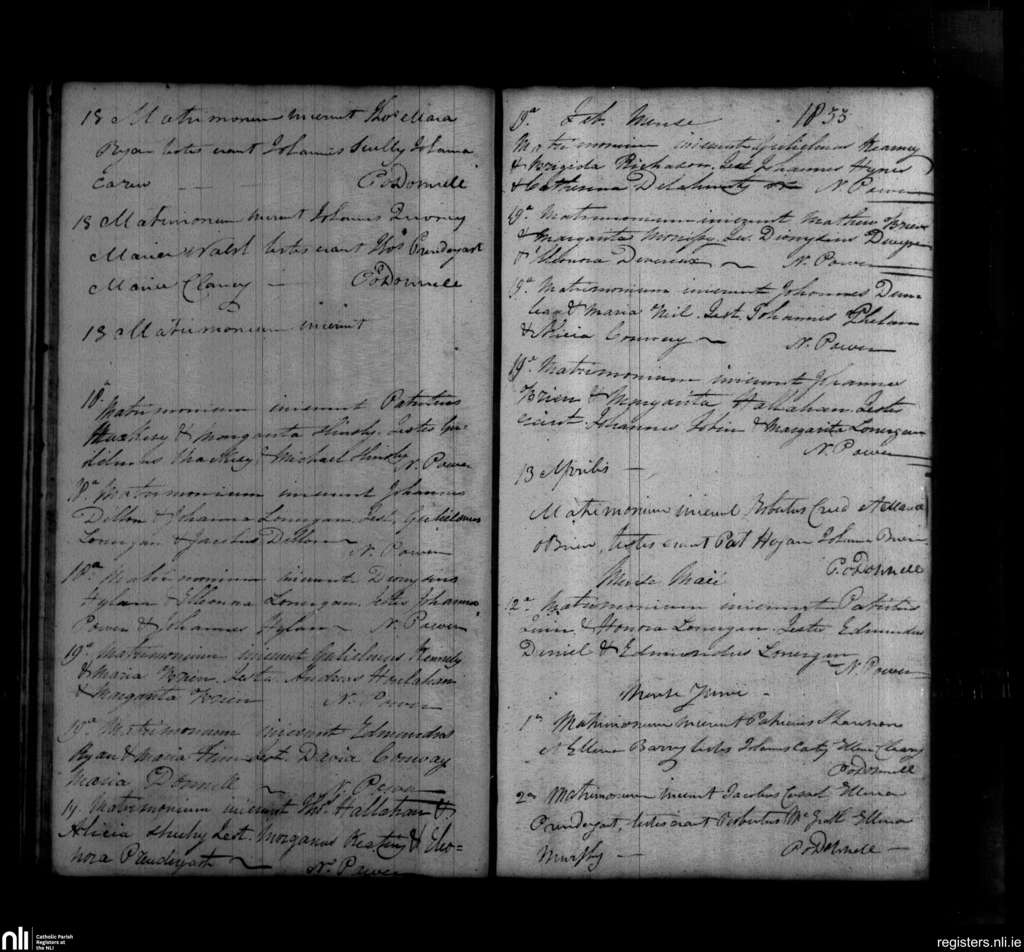 13 Matrimonium inierunt Thos Mara
Ryan testes erant Johannis Scully Johana
Carew P. oDonnell
13 Matrimonium inierunt Johannis
Maria Walsh testes erant Thos Prendergast
Maria Clancy P. oDonnell
13 Matrimonium inierunt
18a Matrimonium inierunt Patritius
& Margarita Testes Gu-
lielmus Mackesy & Michael N. Power
18a Matrimonium inierunt Johannes
Dillon & Johanna Lonergan. Test. Gulielmus
Lonergan & Jacobus Dillon N. Power
18a Matrimonium inierunt Dionysius
Hylan & Elleonora Lonergan. Testes Johannes
Power & Johannes Hylan N. Power
19a Matrimonium inierunt Gulielmus Kennedy
& Maria Brien. Testes Andreas
& Margarita Brien N. Power
19a Matrimonium inierunt Edmundus
Ryan & Maria Test. David Conway
Maria Donnell N. Power
19. Matrimonium inierunt Ths. Hallahan &
Alicia Sheehy Test. Morganus Keating & Eleo=
nora Prendergast N. Power
19a Feb. Mense 1833
Matrimonium inierunt Gulielmus Kearney
& Brigida Test Johannes Hynes
& Catherina Delahunty N. Power
19a Matrimonium inierunt Mathew Brien
& Margarita Test. Dionysius
& Elleonora Devereux N. Power
19a Matrimonium inierunt Johannes Dun-
& Maria Neil. Test. Johannis Phelan
& Alicia Conway N. Power
19a Matrimonium inierunt Johannes
Brien & Margarita Hallahan. Testes
erant Johannes Tobin & Margarita Lonergan
N. Power
13 Aprilis
Matrimonium inierunt Robertus Creed et Maria
oBrien, testes erant Pat Hogan Johanna
P. oDonnell
Mense Maii
12a Matrimonium inierunt Patritius
Quin & Honora Lonergan. Testes Edmundus
Daniel & Edmundus Lonergan
N. Power
Mense Junii
1a Matrimonium inierunt Patricius
et Ellena Barry testes Johannis Ellena Cleary
P. oDonnell
2a Matrimonium inierunt Jacobus Ellena
Prendergast, testes erant Robertus Mc Ellena
Murphy P. oDonnell
nli
Catholic Parish
Registers at
the NLI
registers.nli.ie